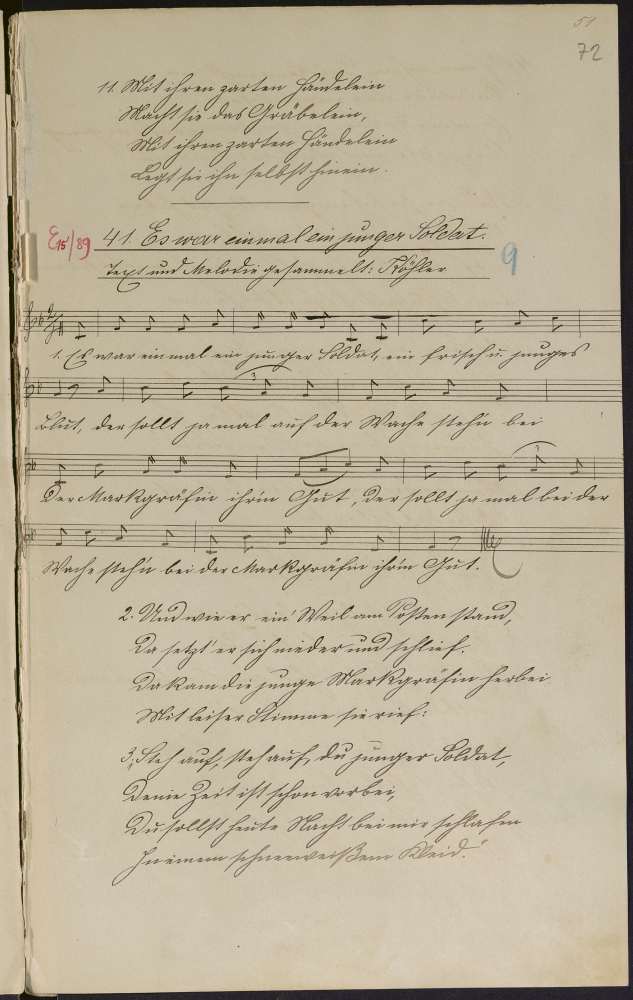 51
72
11. Mit ihren zarten Händelein
Macht sie das Gräbelein,
Mit ihren zarten Händelein
Legt sie ihn selbst hinein.
E15/89 41. Es war einmal ein junger Soldat.
Text und Melodie gesammelt: Köhler
9
1. Es war einmal ein junger Soldat, ein frisch u. junges
Blut, der sollt ja mal auf der Wache stehn bei
der Markgräfin ihr'm Gut, der sollt ja mal bei der
Wache steh'n bei der Markgräfin ihr'm Gut.
2. Und wie er ein Weil am Posten stand,
Da setzt er sich nieder und schlief.
Da kam die junge Markgräfin herbei
Mit leiser Stimme sie rief:
3. Steh auf, steh auf, du junger Soldat,
Deine Zeit ist schon vorbei,
Du sollst heute Nacht bei mir schlafen
In einem schneeweißem Kleid."